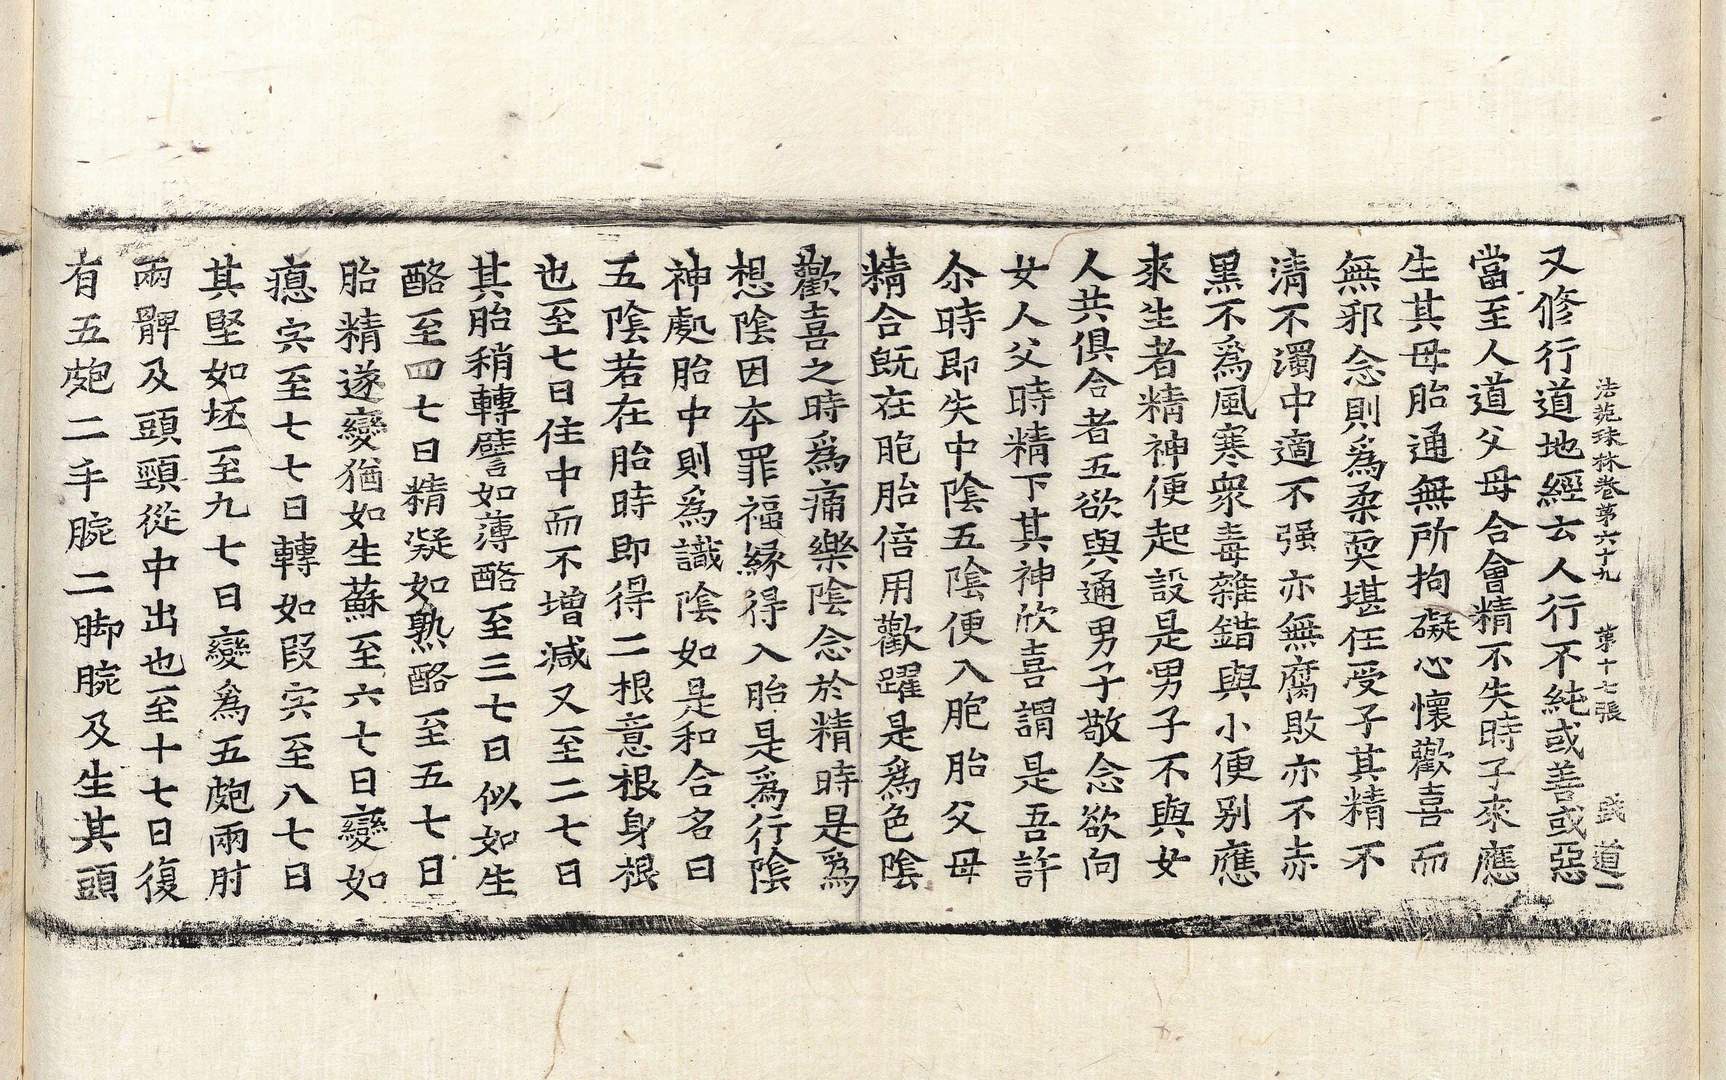 法苑珠林卷第六十九 第十七張 道一
又修行道地經云人行不純或善或惡
當至人道父母合會精不失時子來應
生其母胎通無所拘礙心懷歡喜而
無邪念則為柔耎堪任受子其精不
清不濁中適不强亦無腐敗亦不赤
黑不為風寒衆毒雜錯與小便別應
來生者精神便起設是男子不與女
人共俱合者五欲與通男子敬念欲向
女人父時精下其神欣喜謂是吾許
尒時即失中陰五陰便入胞胎父母
精合旣在胞胎倍用歡躍是為色陰
歡喜之時為痛樂陰念於精時是為
想陰因本罪福緣得入胎是為行陰
神處胎中則為識陰如是和合名曰
五陰若在胎時即得二根意根身根
也至七日住中而不增減又至二七日
其胎稍轉譬如薄酪至三七日似如生
酪至四七日精凝如熟酪至五七日
胎精遂變猶如生蘇至六七日變如
瘜宍至七七日轉如段宍至八七日
其堅如坯至九七日變為五皰兩肘
兩髀及頭頸從中出也至十七日復
有五皰二手腕二脚腕及生其頭